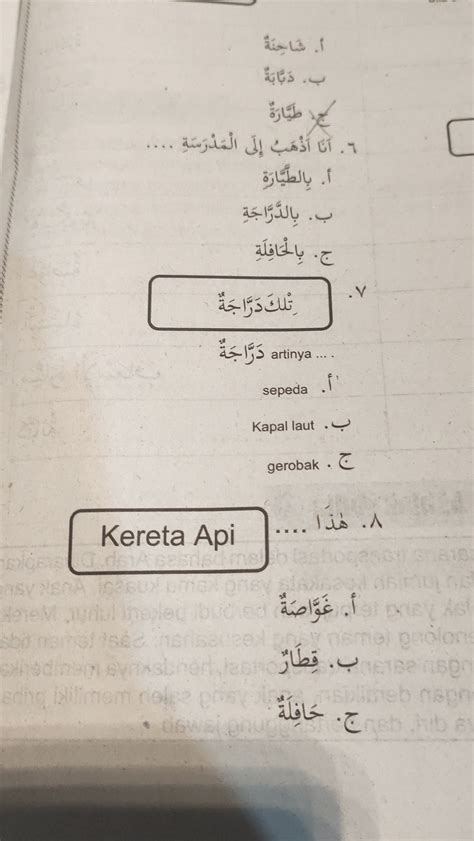 أ. شَاحِنَةٌ
ب. دَبَّابَةٌ
ج. طَيَّارَةٌ
٦. أَنَا أَذْهَبُ إِلَى الْمَدْرَسَةِ ....
أ. بِالطَّيَّارَةِ
ب. بِالدَّرَّاجَةِ
ج. بِالْحَافِلَةِ
٧. تِلْكَ دَرَّاجَةٌ
دَرَّاجَةٌ artinya ... .
أ. sepeda
ب. Kapal laut
ج. gerobak
٨. هٰذَا .... Kereta Api
أ. غَوَّاصَةٌ
ب. قِطَارٌ
ج. حَافِلَةٌ